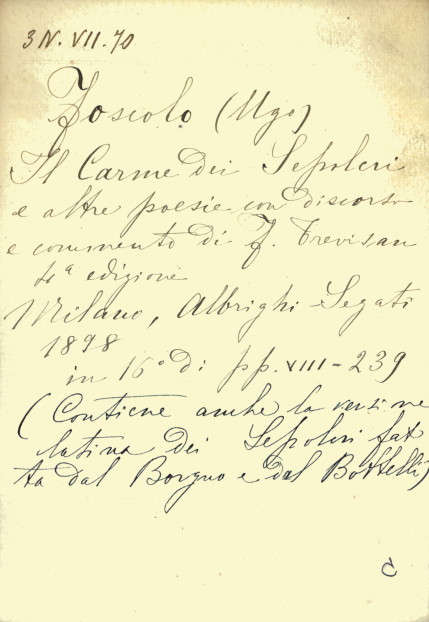 3 N. VII. 70
Foscolo (Ugo)
Il Carme dei Sepolcri
e altre poesie con discorso
e commento di F. Trevisan
4ª edizione
Milano, Albrighi Segati
1898
in 16° di pp. VIII-239
(Contiene anche la versione
latina dei Sepolcri fat
ta dal Borgno e dal Bottelli)